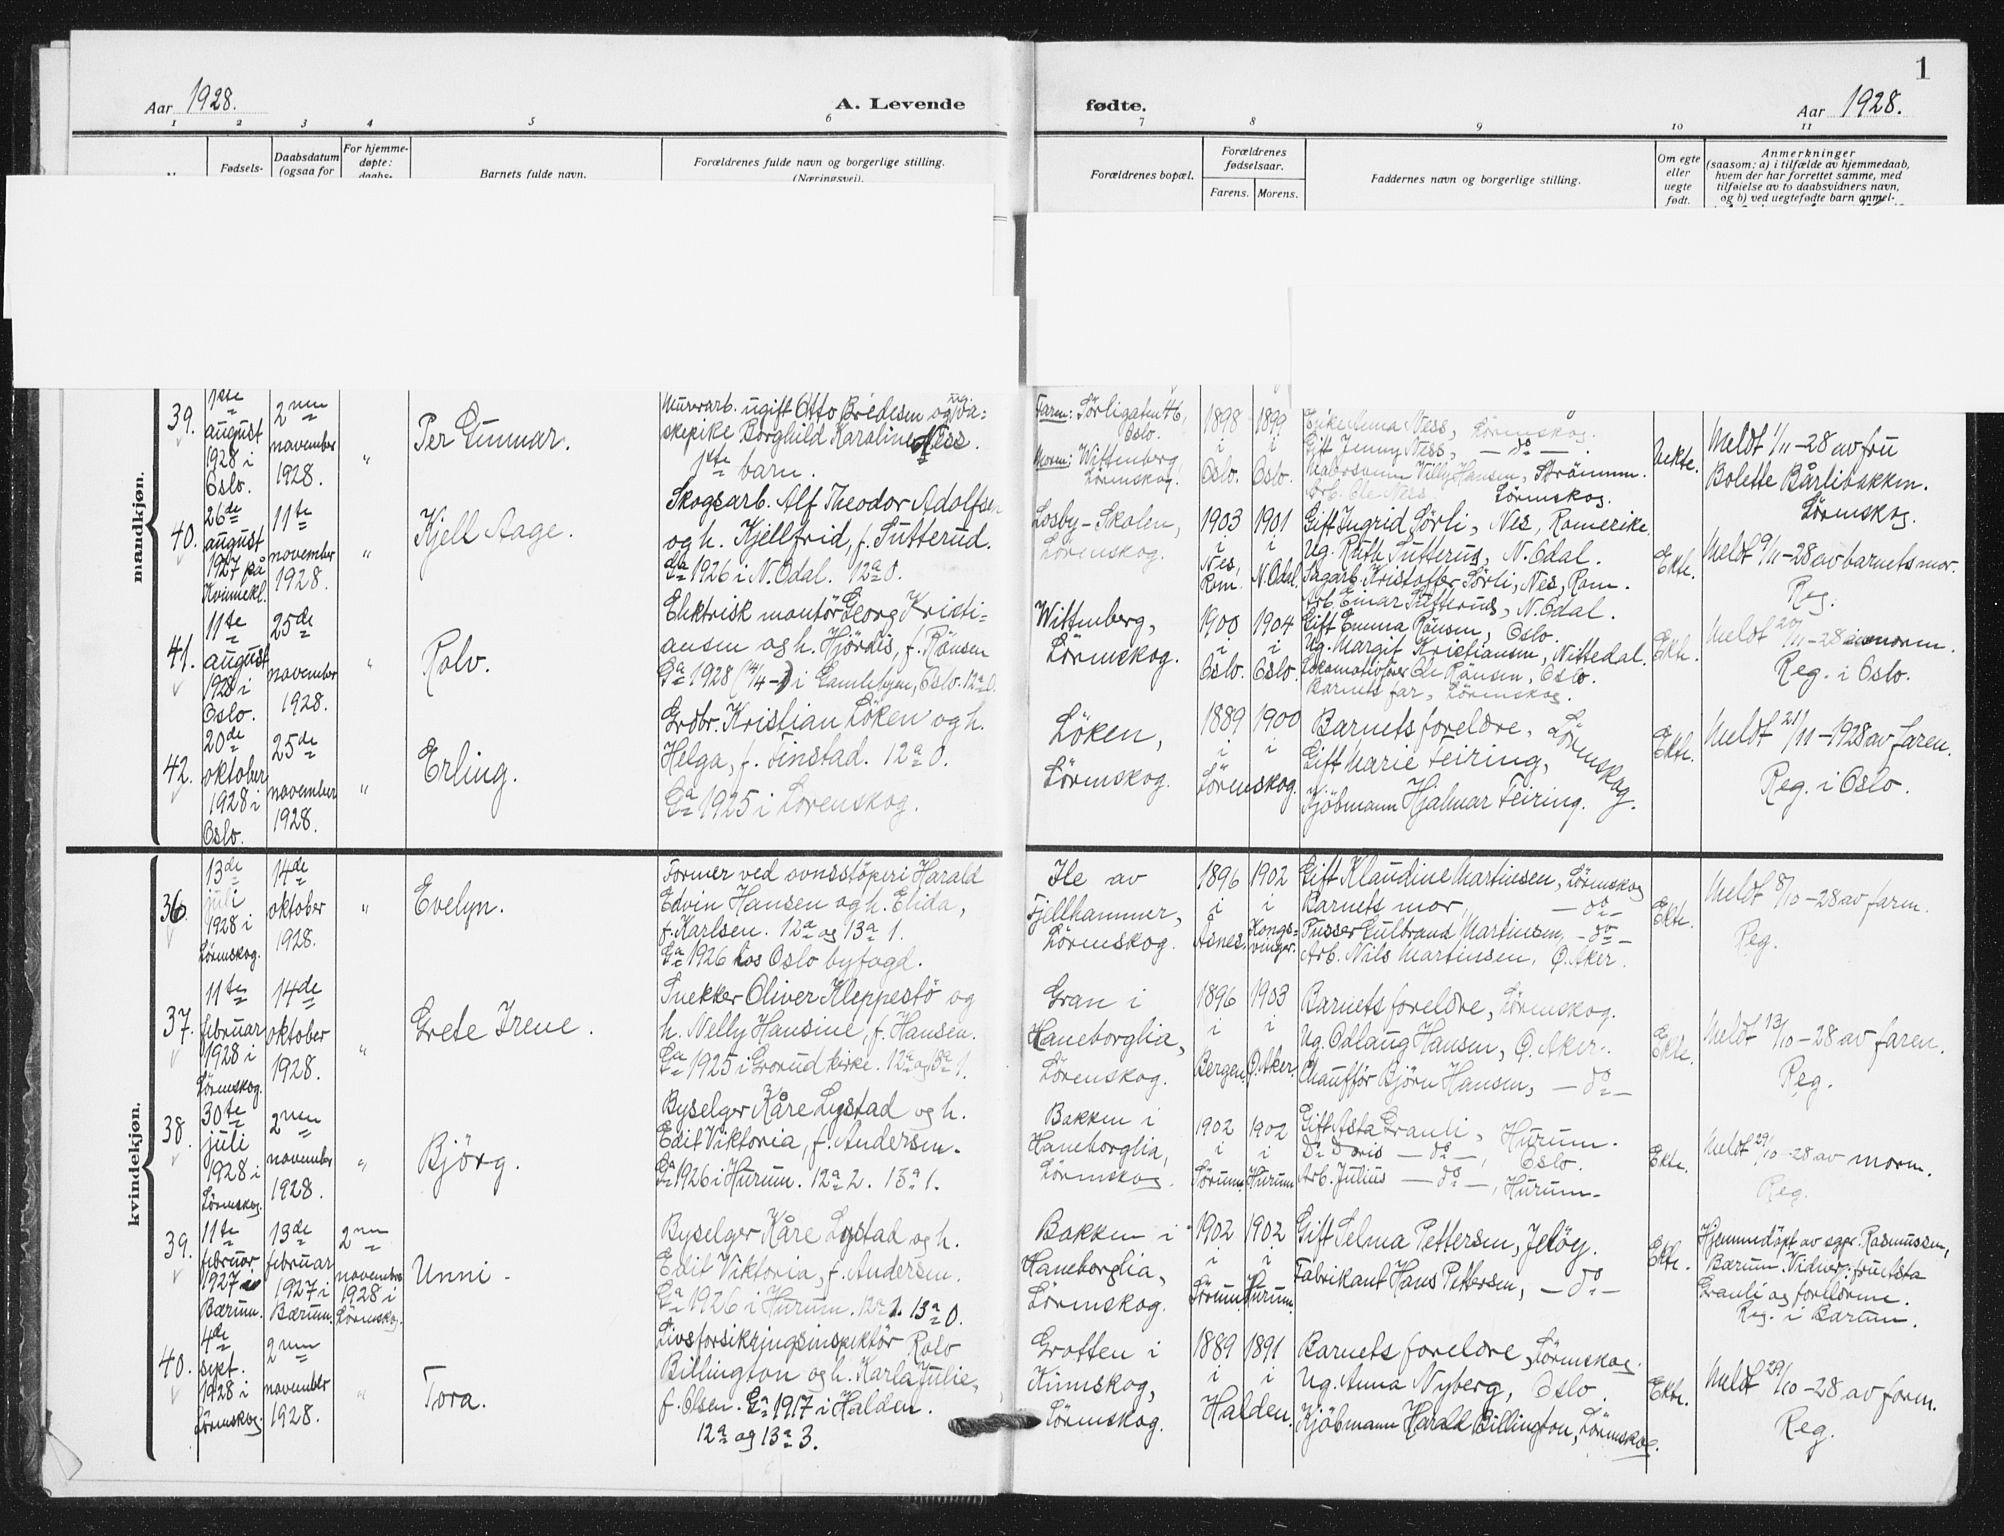 1
Aar 1928.
A. Levende
fødte.
Aar 1928.
1 2 3 4 5 6 7 8 9 10 11
Fødsels-
Daabsdatum
(ogsaa for
For hjemme-
døpte:
daabs-
Barnets fulde navn.
Forældrenes fulde navn og borgerlige stilling.
(Næringsvei).
Forældrenes bopæl.
Forældrenes
fødselsaar.
Farens. Morens.
Faddernes navn og borgerlige stilling.
Om egte
eller
uegte
født.
Anmerkninger
(saasom: a) i tilfælde av hjemmedaab,
hvem der har forrettet samme, med
tilføielse av to daabsvidners navn,
og b) ved uegtefødte barn anmel-
mandkjøn.
39.
1ste
august
1928 i
Oslo.
2nen
november
1928.
"
Per Gunnar.
Murerarb. ugift Otto Bredesen og
skepike Borghild Karoline Ness.
1ste barn.
Faren: Sörligaten 46,
Oslo.
Moren: Wittenberg,
Lörenskog.
1898
i
Oslo.
1899
i
Oslo.
Enke Anna Ness, Lörenskog.
Gift Jenny Ness, — do —.
Villy Hansen, Strömmen.
Arb. Ole Ness Lörenskog.
Uekte.
Meldt 1/11–28 av fru
Bolette Bårlibakken.
Lörenskog.
40.
26de
august
1927 på
Kvinnekl.
11te
november
1928.
"
Kjell Aage.
Skogsarb. Alf Theodor Adolfsen
og h. Kjellfrid, f. Sutterud.
Ga 1926 i N. Odal. 12a 0.
Losby-Skolen,
Lörenskog.
1903
i
Nes,
Rom.
1901
i
N. Odal.
Gift Ingrid Sörli, Nes, Romerike
Ug. Ruth Sutterud, N. Odal.
Sagarb. Kristoffer Sörli, Nes, Rom.
Arb. Einar Sutterud, N. Odal.
Ekte.
Meldt 9/11–28 av barnets mor.
Reg.
41.
11te
august
1928 i
Oslo.
25de
november
1928.
"
Rolv.
Elektrisk montör Georg Kristi-
ansen og h. Hjördis, f. Rönsen
Ga 1928 (14/4–) i Gamlebyen, Oslo. 12a 0.
Wittenberg,
Lörenskog.
1900
i
Oslo.
1904
i
Oslo.
Gift Emma Rönsen, Oslo.
Ug. Margit Kristiansen, Nittedal.
Lokomotivförer Ole Rönsen, Oslo.
Barnets far, Lörenskog.
Ekte.
Meldt 20/11–28 av moren.
Reg. i Oslo.
42.
20de
oktober
1928 i
Oslo.
25de
november
1928.
"
Erling.
Grdbr. Kristian Löken og h.
Helga, f. Finstad. 12a 0.
Ga 1925 i Lörenskog.
Löken,
Lörenskog.
1889
i
1900
i
Lörenskog.
Barnets foreldre, Lörenskog.
Gift Marie Feiring,
Kjöbmann Hjalmar Feiring.
Ekte.
Meldt 21/11–1928 av faren.
Reg. i Oslo.
kvindekjøn.
36.
13de
juli
1928 i
Lörenskog.
14de
oktober
1928.
"
Evelyn.
Former ved ovnsstöperi Harald
Edvin Hansen og h. Elida,
f. Karlsen. 12a og 13a 1.
Ga 1926 hos Oslo byfogd.
Ile av
Fjellhammer,
Lörenskog.
1896
i
Åsnes.
1902
i
Kongs-
vinger.
Gift Klaudine Martinsen, Lörenskog
Barnets mor, — do —
Pusser Gulbrand Martinsen, — do —
Arb. Nils Martinsen, Ö. Aker.
Ekte.
Meldt 8/10–28 av faren.
Reg.
37.
11te
februar
1928 i
Lörenskog.
14de
oktober
1928.
"
Grete Irene.
Snekker Oliver Kleppestö og
h. Nelly Hansine, f. Hansen.
Ga 1925 i Grorud kirke. 12a og 13a 1.
Gran i
Haneborglia,
Lörenskog.
1896
i
Bergen.
1903
i
Ö. Aker.
Barnets foreldre, Lörenskog.
Ug. Odlaug Hansen, Ö. Aker.
Chaufför Björn Hansen, — do —
Ekte.
Meldt 13/10–28 av faren.
Reg.
38.
30te
juli
1928 i
Lörenskog.
2nen
november
1928.
"
Björg.
Byselger Kåre Lystad og h.
Edit Viktoria, f. Andersen.
Ga 1926 i Hurum. 12a 2. 13a 1.
Bakken i
Haneborglia,
Lörenskog.
1902
i
Sörum.
1902
i
Hurum
Gift Asta Granli, Hurum.
Do Doris — do —, Oslo.
Arb. Julius — do —, Hurum.
Ekte.
Meldt 29/10–28 av moren.
Reg.
39.
11te
februar
1927 i
Bærum.
13de
februar
1927 i
Bærum.
2nen
november
1928 i
Lörenskog.
Unni.
Byselger Kåre Lystad og h.
Edit Viktoria, f. Andersen.
Ga 1926 i Hurum. 12a 1. 13a 0.
Bakken i
Haneborglia,
Lörenskog.
1902
i
Sörum.
1902
i
Hurum.
Gift Selma Pettersen, Jelöy.
Fabrikant Hans Pettersen, — do —
Ekte.
Hjemmedöpt av sgpr. Rasmussen,
Bærum. Vidner: fru Asta
Granli og foreldrene.
Reg. i Bærum.
40.
4de
sept.
1928 i
Lörenskog.
2nen
november
1928.
"
Tora.
Livsforsikringsinspektör Rolv
Billington og h. Karla Julie,
f. Olsen. Ga 1917 i Halden.
12a og 13a 3.
Grotten i
Kinnskog,
Lörenskog.
1889
i
1891
i
Halden.
Barnets foreldre, Lörenskog.
Ug. Anna Nyberg, Oslo.
Kjöbmann Harald Billington, Lörenskog.
Ekte.
Meldt 29/10–28 av faren.
Reg.